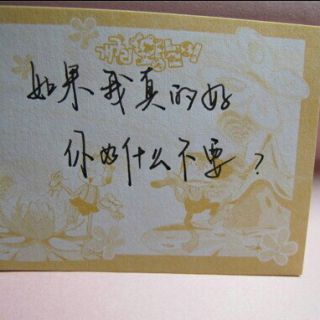 如果我真的好
你为什么不要？